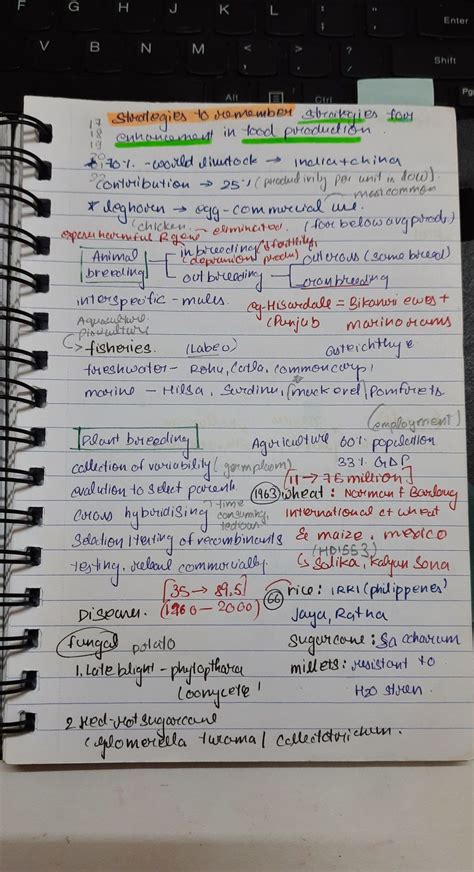 F G H J K L Enter
V B N M Shift
Alt Ctrl
17
18
19
Strategies to remember strategies for
enhancement in food production.
* 70% -world livestock → india+china
contribution → 25% (productivity per unit in low).
most common
* leghorn → egg-commercial use.
(chicken. eliminated. (for below avg prods)
Animal breeding
inbreeding (
outbreeding
outcross (same breed)
crossbreeding
interspecific - mules.
eg-Hisardale = Bikanri ewes +
(Punjab marino rams
Aquaculture
pisciculture
fisheries. (Labeo) Osteichthye
freshwater - Rohu, Catla, common carp,
marine - Hilsa, Surdinu, (mackerel) Pomfrets
(employment)
Plant breeding Agriculture 60% population
33% GDP
collection of variability (germplasm) [11 → 75 million]
evalution to select parents (1963) wheat: Norman E Borlaug
cross hybridising time consuming, tedious International ct wheat
Selation | testing of recombinants & maize, mexico
(HD1553)
testing, releasd commercially ↳ Solika, Kalyan Sona
[35 → 89.5] (66) rice: IRRI (philippenes'
Diseases. (1960 - 2000) Jaya, Ratna
fungal potato sugarcane: Saccharum
1. Late blight - phytopthora millets: resistant to
(oomycete) H2O stren.
2 Red-rot sugarcane
(glomerella turama / collectotrichum.